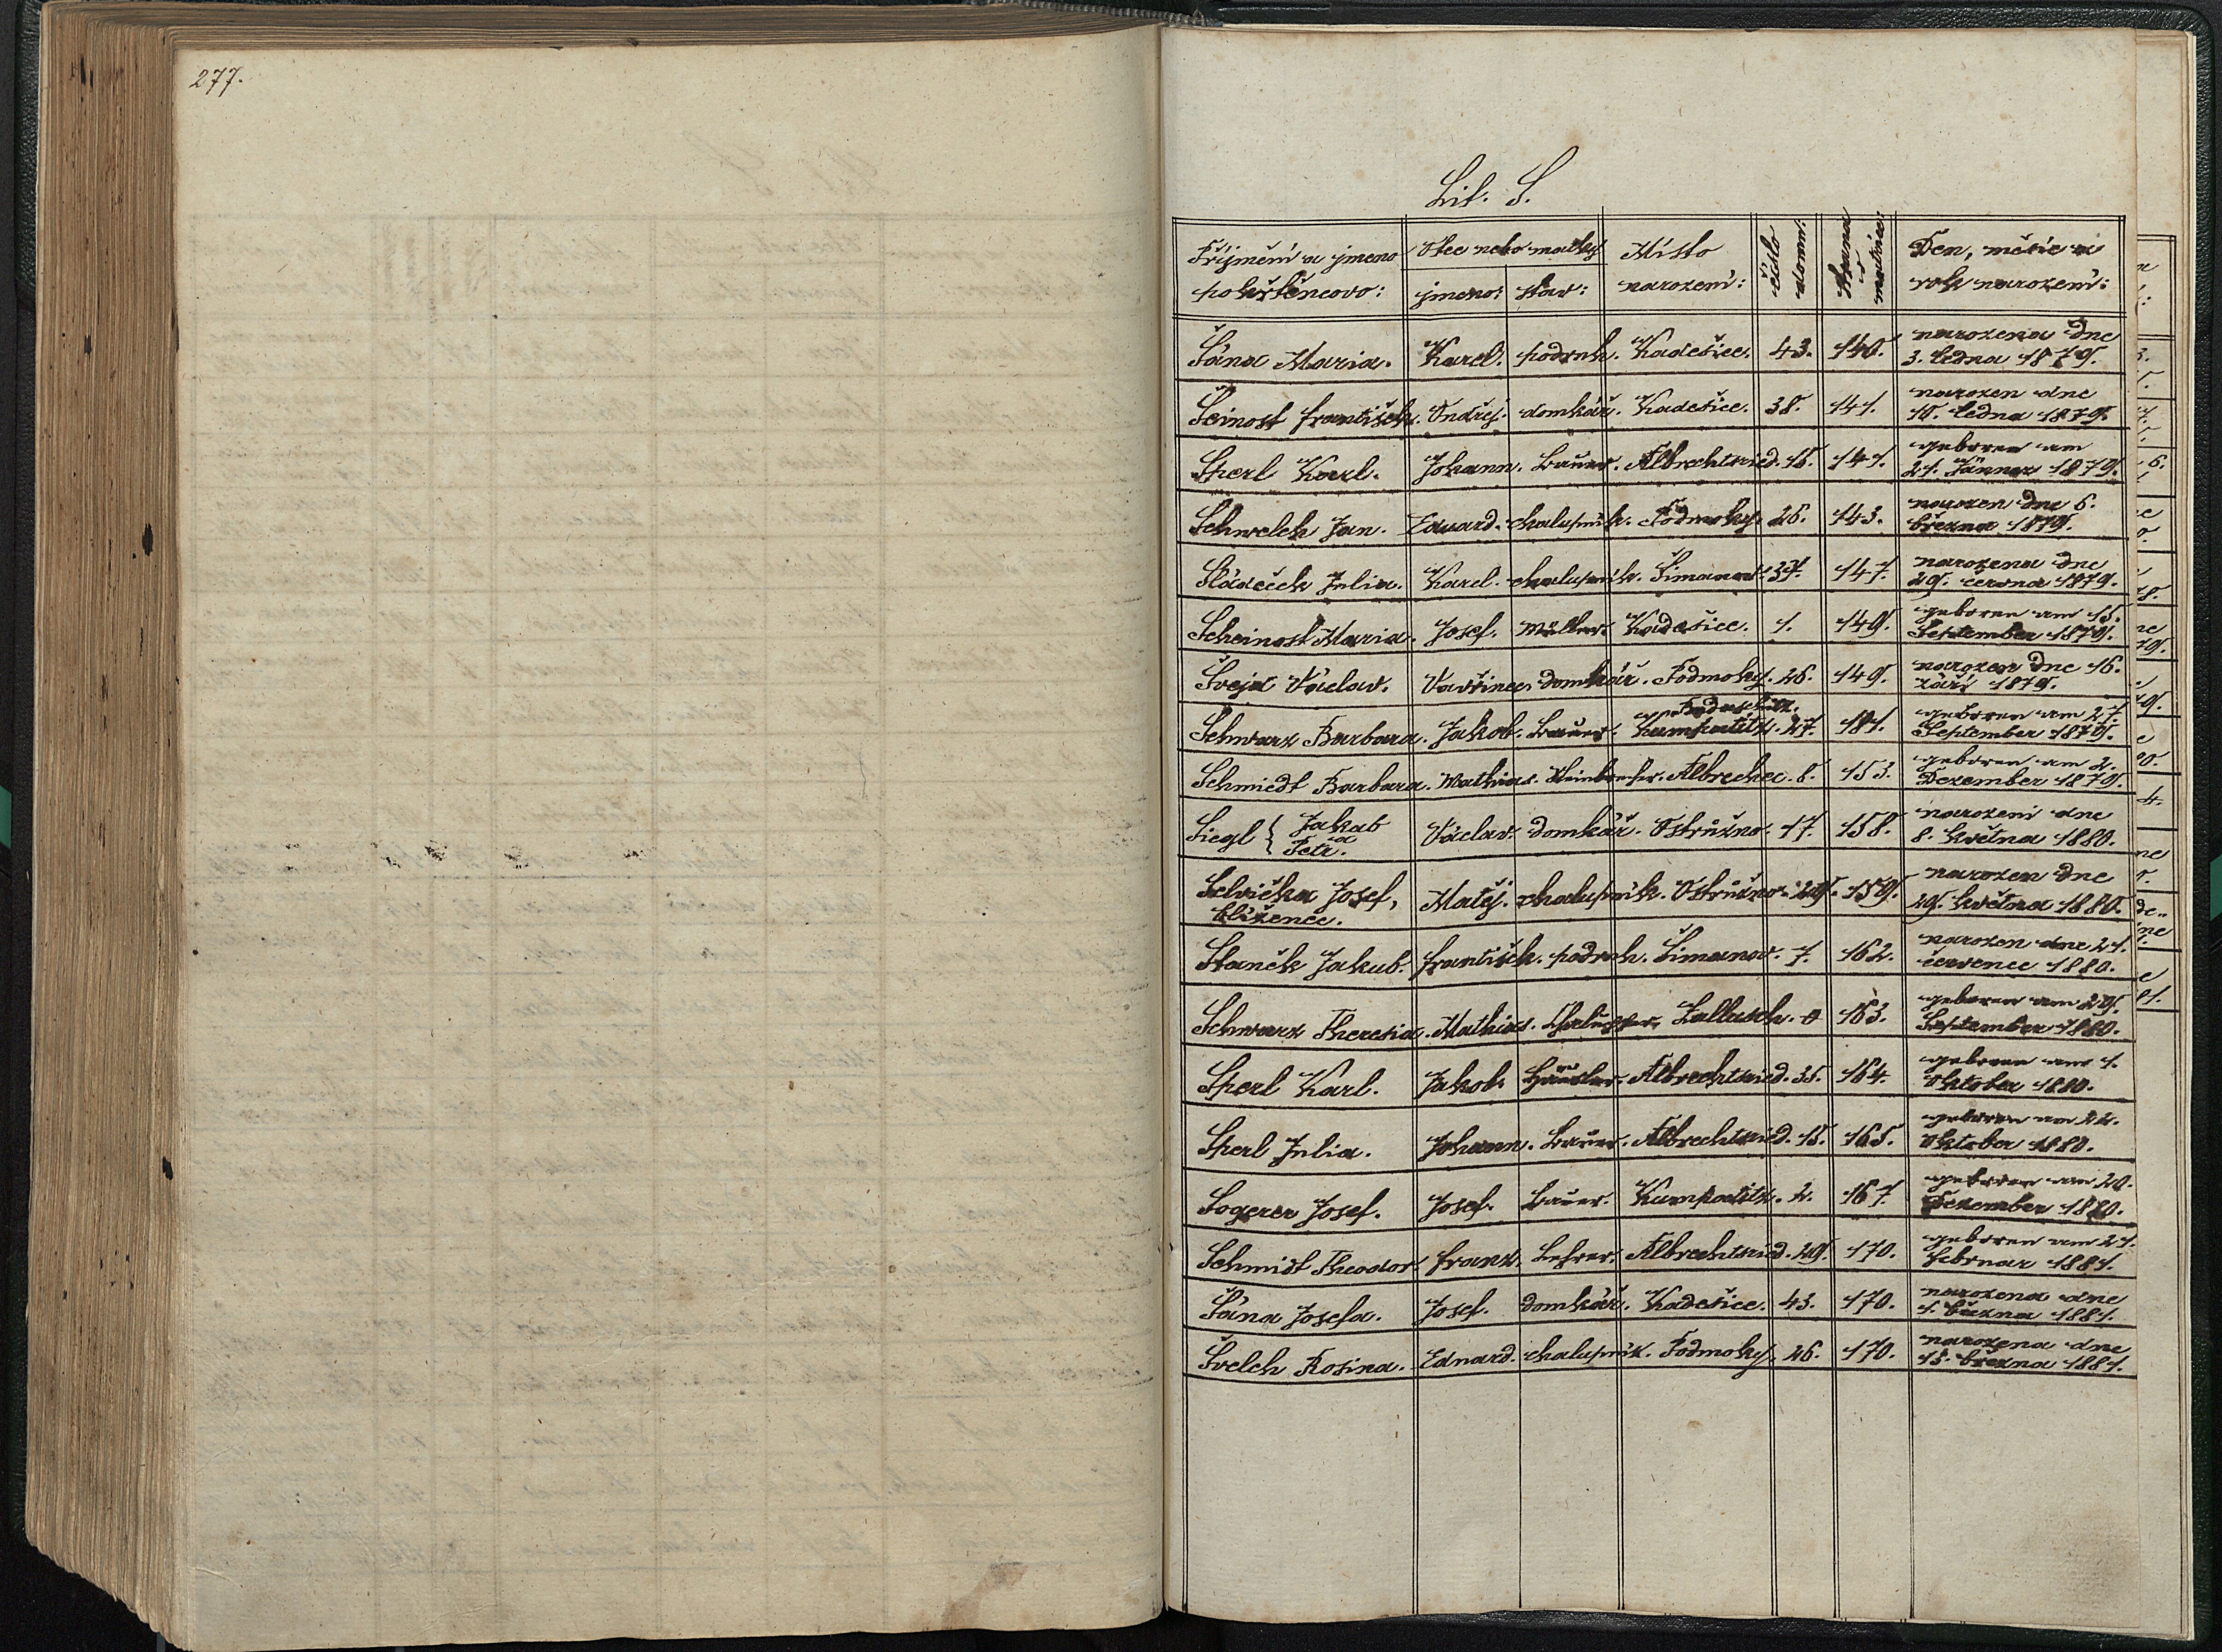 277.
Lit. S.
Příjmení a jmeno Otec nebo matky Místo číslo domu: Strana v matrice: Den, měsíc a
pokřtěncovo: jmeno: stav: narození: rok narození:
Šána Maria. Karel. podruh. Kadešice. 43. 140. narozena dne
3. ledna 1879.
Šeinost František. Ondřej. domkář. Kadešice. 38. 141. narozen dne
10. ledna 1879.
Sperl Karl. Johann. Bauer. Albrechtsried. 15. 141. geboren am
21. Jänner 1879.
Schwelch Jan. Eduard. chalupník. Podmoky. 26. 143. narozen dne 6.
března 1879.
Sládeček Julia. Karel. chalupník. Šimanov. 37. 147. narozena dne
29. června 1879.
Scheinost Maria. Josef. Müller. Kadešice. 1. 149. geboren am 15.
September 1879.
Šveja Václav. Vavřinec. domkář. Podmoky. 26. 149. narozen dne 16.
září 1879.
Schwarz Barbara. Jakob. Bauer. Kumpatitz. 27. 151. geboren am 27.
September 1879.
Schmiedt Barbara. Mathias. Albrechec. 8. 153. geboren am 2.
Dezember 1879.
Siegl { Jakab a Petr. Václav. domkář. Ostružno. 17. 158. narozeni dne
8. května 1880.
Selvička Josef, Matěj. chalupník. Ostružno. 29. 159. narozen dne
blíženec. 29. května 1880.
Staněk Jakub. František. podruh. Šimanov. 7. 162. narozen dne 21.
července 1880.
Schwarz Theresia. Mathias. Chalupper. 163. geboren am 29.
September 1880.
Sperl Karl. Jakob. Häusler. Albrechtsried. 35. 164. geboren am 1.
Oktober 1880.
Sperl Julia. Johann. Bauer. Albrechtsried. 15. 165. geboren am 22.
Oktober 1880.
Sogerer Josef. Josef. Bauer. Kumpatitz. 2. 167. geboren am 20.
Dezember 1880.
Schmidt Theodor. Franz. Lehrer. Albrechtsried. 29. 170. geboren am 21.
Februar 1881.
Šána Josefa. Josef. domkář. Kadešice. 43. 170. narozena dne
1. března 1881.
Švelch Rosina. Eduard. chalupník. Podmoky. 26. 170. narozena dne
15. března 1881.